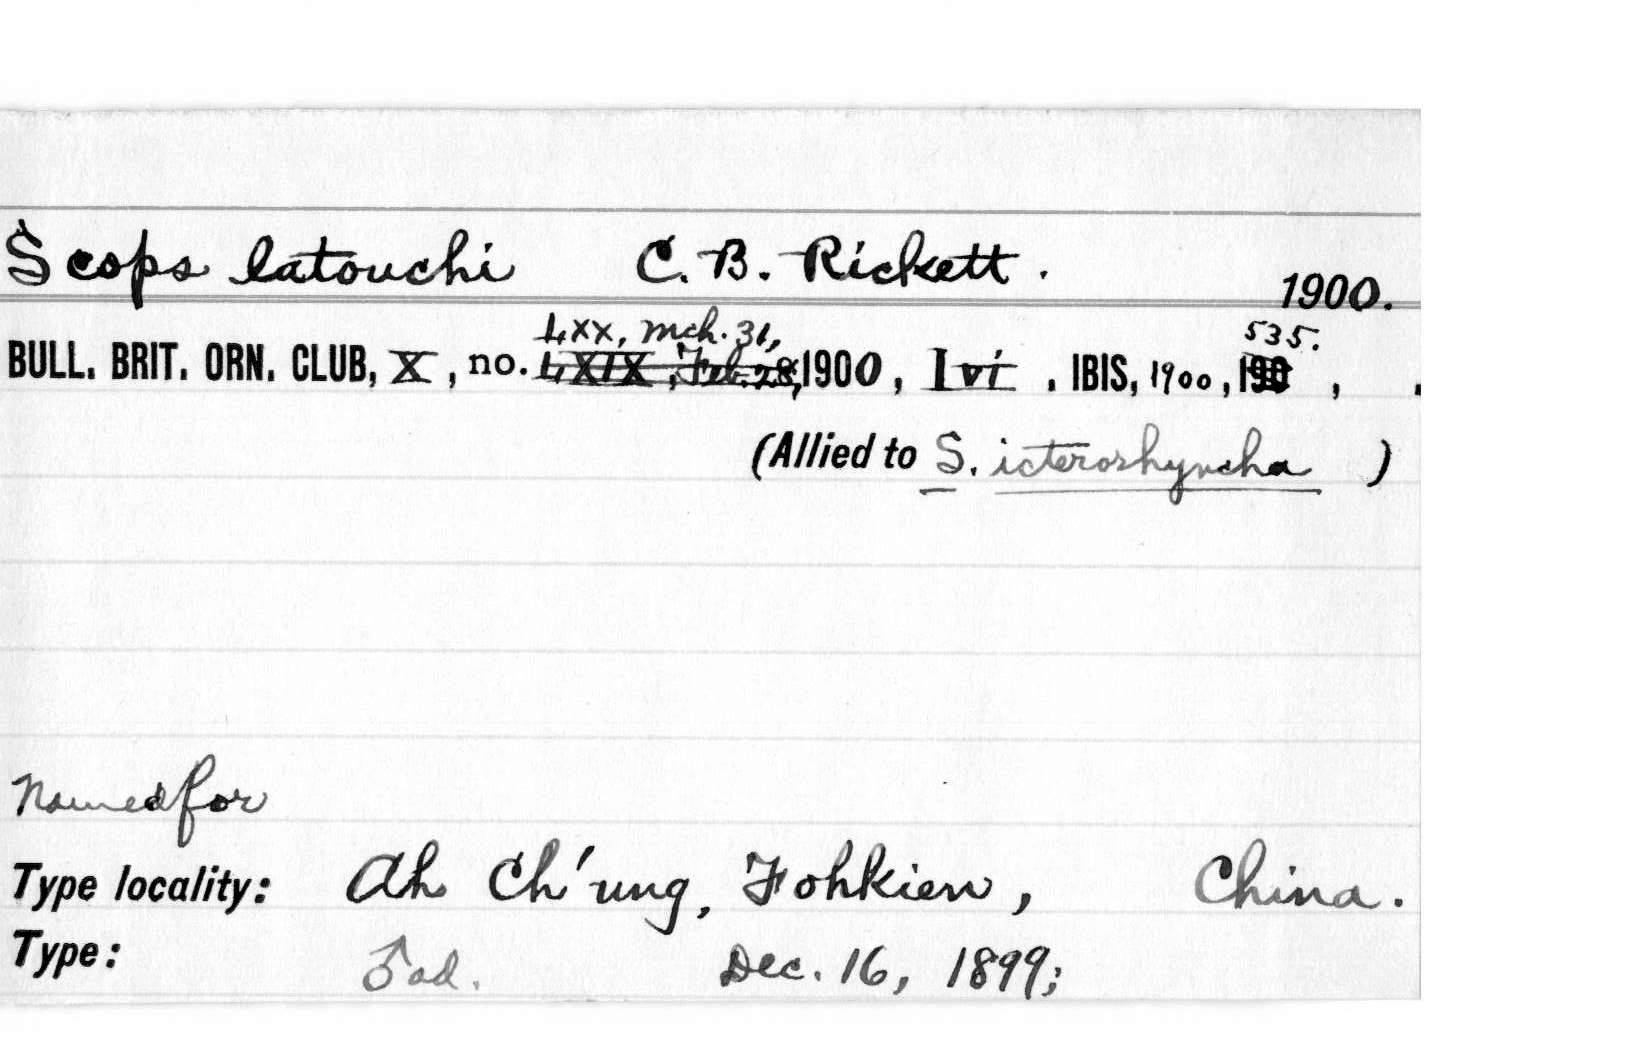 Scops latouchi C. B. Rickett.
1900.
Lxx, Mch. 31, 535.
BULL. BRIT. ORN. CLUB, X, no. LXIX, Feb. 28, 1900, lvi. IBIS, 1900, 190, .
(Allied to S. icterorhyncha )
Named for
Type locality: Ah Ch'ung, Fohkien, China.
Type: ♂ ad. Dec. 16, 1899;